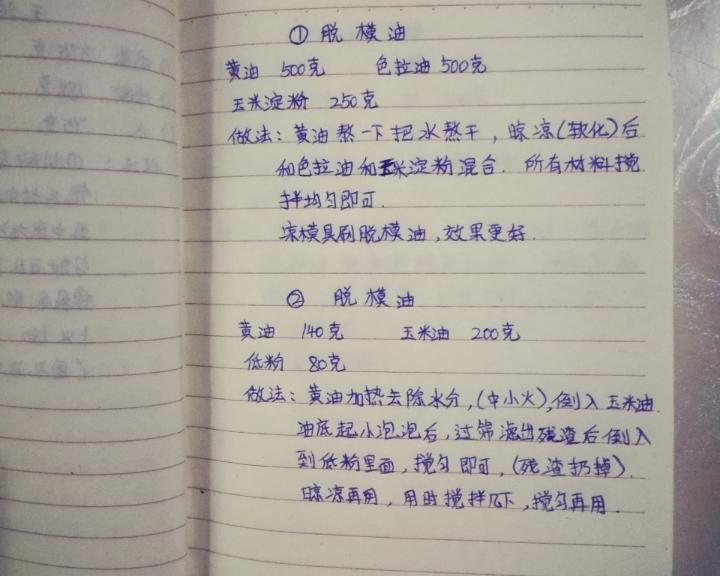 ① 脱模油
黄油 500克 色拉油 500克
玉米淀粉 250克
做法：黄油熬一下把水熬干，晾凉(软化)后
和色拉油和玉米淀粉混合. 所有材料搅
拌均匀即可.
凉模具刷脱模油，效果更好.
② 脱模油
黄油 140克 玉米油 200克
低粉 80克
做法：黄油加热去除水分，(中小火)，倒入玉米油.
油底起小泡泡后，过筛滤出残渣后倒入
到低粉里面，搅匀即可，(残渣扔掉).
晾凉再用，用时搅拌几下，搅匀再用.